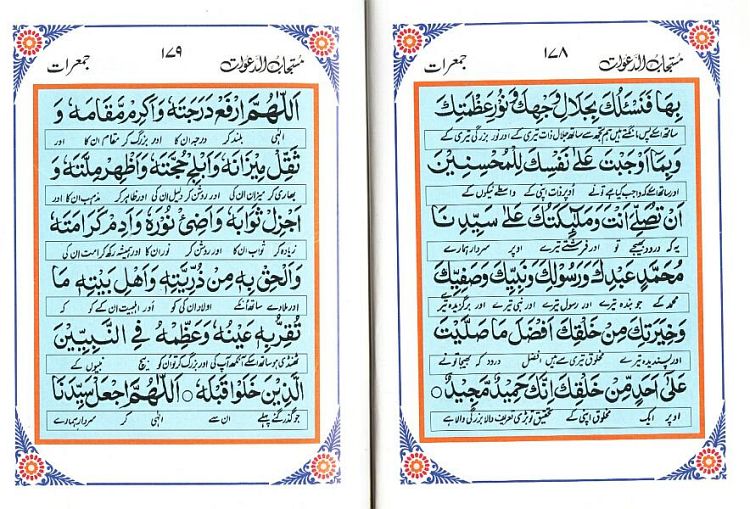 مستجاب الدعوات ۱۷۸ جمعرات
بِهَا فَنَسْئَلُكَ بِجَلَالِ وَجْهِكَ وَنُوْرِ عَظَمَتِكَ
ساتھ اسکے پس مانگتے ہیں ہم تجھ سے ساتھ جلال ذات تیری کے اور نور بزرگی تیری کے
وَبِمَا اَوْجَبْتَ عَلٰى نَفْسِكَ لِلْمُحْسِنِيْنَ
اور ساتھ اسکے کہ واجب کیا ہے تونے اوپر ذات اپنی کے واسطے نیکوں کے
اَنْ تُصَلِّيَ اَنْتَ وَمَلٰٓئِكَتُكَ عَلٰى سَيِّدِنَا
یہ کہ درود بھیجے تو اور فرشتے تیرے اوپر سردار ہمارے
مُحَمَّدٍ عَبْدِكَ وَرَسُوْلِكَ وَنَبِيِّكَ وَصَفِيِّكَ
محمد کے جو بندہ تیرے اور رسول تیرے اور نبی تیرے اور برگزیدہ تیرے
وَخِيَرَتِكَ مِنْ خَلْقِكَ اَفْضَلَ مَا صَلَّيْتَ
اور پسندیدہ تیرے مخلوق تیری سے ہیں افضل درود کہ بھیجا تونے
عَلٰى اَحَدٍ مِّنْ خَلْقِكَ اِنَّكَ حَمِيْدٌ مَّجِيْدٌ ○
اوپر ایک مخلوق اپنی کے تحقیق تو بڑی تعریف والا بزرگی والا ہے
مستجاب الدعوات ۱۷۹ جمعرات
اَللّٰهُمَّ ارْفَعْ دَرَجَتَهٗ وَاَكْرِمْ مَّقَامَهٗ وَ
الٰہی بلند کر درجہ ان کا اور بزرگ کر مقام ان کا اور
ثَقِّلْ مِيْزَانَهٗ وَاَبْلِجْ حُجَّتَهٗ وَاَظْهِرْ مِلَّتَهٗ وَ
بھاری کر میزان ان کی اور روشن کر دلیل ان کی اور ظاہر کر مذہب ان کا اور
اَجْزِلْ ثَوَابَهٗ وَاَضِئْ نُوْرَهٗ وَاَدِمْ كَرَامَتَهٗ
زیادہ کر ثواب ان کا اور روشن کر نور ان کا اور ہمیشہ رکھ کرامت ان کی
وَاَلْحِقْ بِهٖ مِنْ ذُرِّيَّتِهٖ وَاَهْلِ بَيْتِهٖ مَا
اور ملا دے ساتھ انکے اولاد ان کی کو اور اہلبیت ان کے کو کہ
تُقِرُّ بِهٖ عَيْنَهٗ وَعَظِّمْهُ فِي النَّبِيِّيْنَ
ٹھنڈی ہو ساتھ اسکے آنکھ آپ کی اور بزرگ کر تو ان کو بیچ نبیوں کے
الَّذِيْنَ خَلَوْا قَبْلَهٗ ○ اَللّٰهُمَّ اجْعَلْ سَيِّدَنَا
جو گذر گئے پہلے ان سے الٰہی کر سردار ہمارے